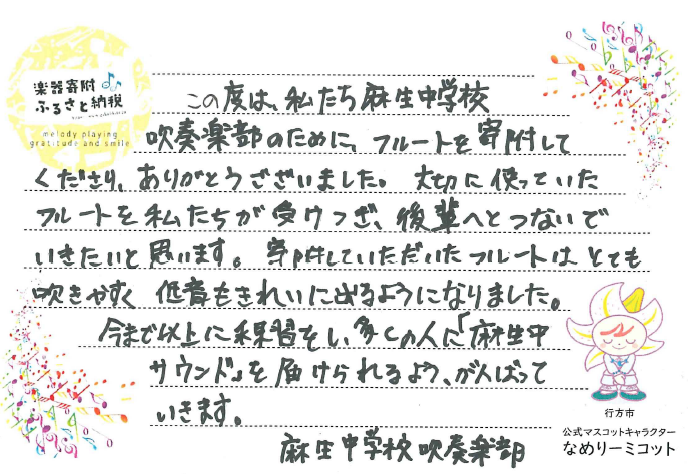 楽器寄附
ふるさと納税
melody playing
gratitude and smile
この度は、私たち麻生中学校
吹奏楽部のために、フルートを寄附して
くださり、ありがとうございました。大切に使っていた
フルートを私たちが受けつぎ、後輩へとつないで
いきたいと思います。寄附していただいたフルートはとても
吹きやすく低音もきれいに出るようになりました。
今まで以上に練習をし、多くの人に「麻生中
サウンド」を届けられるよう、がんばって
いきます。
麻生中学校吹奏楽部
行方市
公式マスコットキャラクター
なめりーミコット